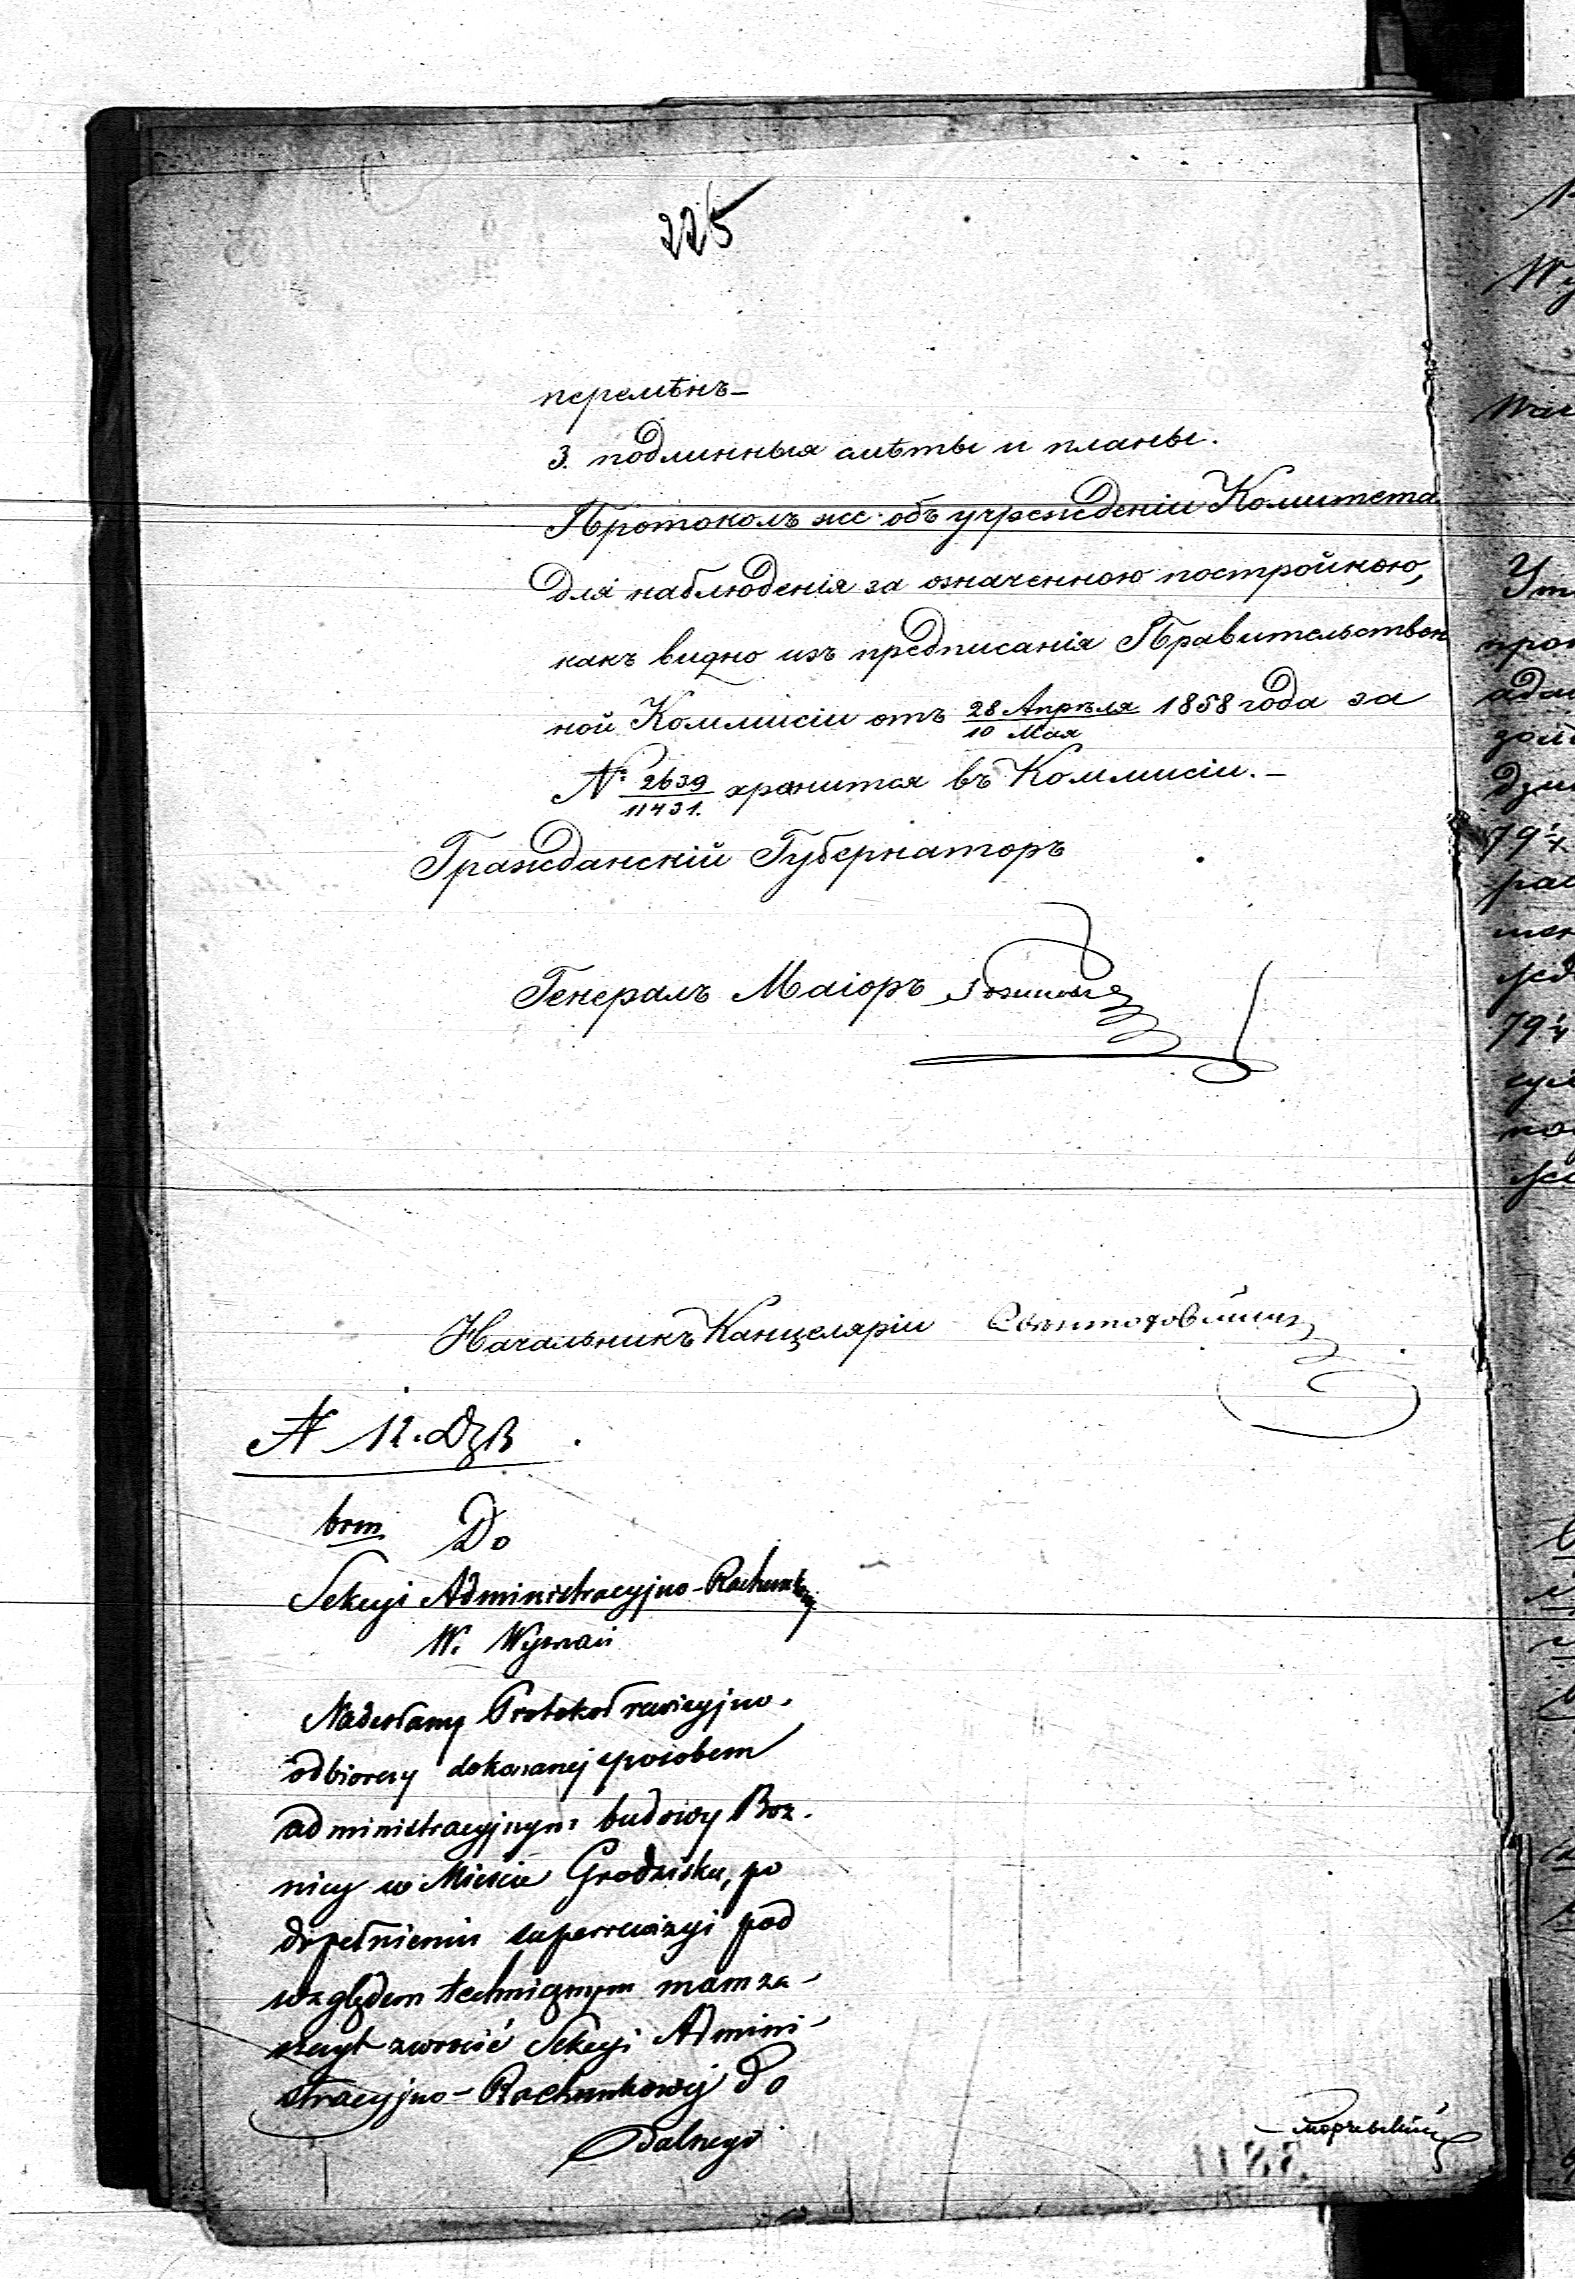 225
перемѣнъ—
3. подлинныя смѣты и планы.
Протоколъ же объ учрежденіи Комитета
для наблюденія за означенною постройкою,
какъ видно изъ предписанія Правительствен
ной Коммисіи отъ 28 Апрѣля/10 Мая 1858 года за
№ 2639/11431. хранится въ Коммисіи.—
Гражданскій Губернаторъ
Генералъ Маіоръ
Начальникъ Канцеляріи
N 12.
brm Do
Sekcyi Administracyjno-Rachunkowej
W. Wyznań
Nadesłany Protokoł rewizyjno-
odbiorczy dokonanej sposobem
administracyjnym budowy Boz-
nicy w Mieście Grodzisku, po
dopełnieniu superrewizyi pod
względem technicznym mam za-
szczyt zwrócić Sekcyi Admini-
stracyjno-Rachunkowej do
dalszego